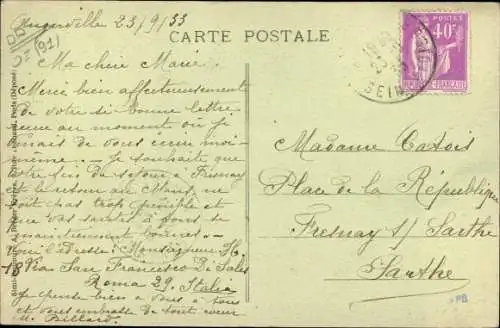 Angerville 23/9/33
CARTE POSTALE
Ma chère Marie
Merci bien affectueusement
de votre si bonne lettre
reçue au moment où je
venais de vous écrire moi-
même. — Je souhaite que
votre fin de séjour à Fresnay
et le retour au Mans, ne
soit pas trop pénible et
que vos santés à tous se
maintiennent bonnes —
Voici l'adresse: Monseigneur H.
18 Via San Francesco Di Sales
Roma 29. Italia
Je pense bien à vous à tous
et vous embrasse de tout coeur
M. Billard
POSTES
40c
Madame Catois
Place de la République
Fresnay s/ Sarthe
Sarthe